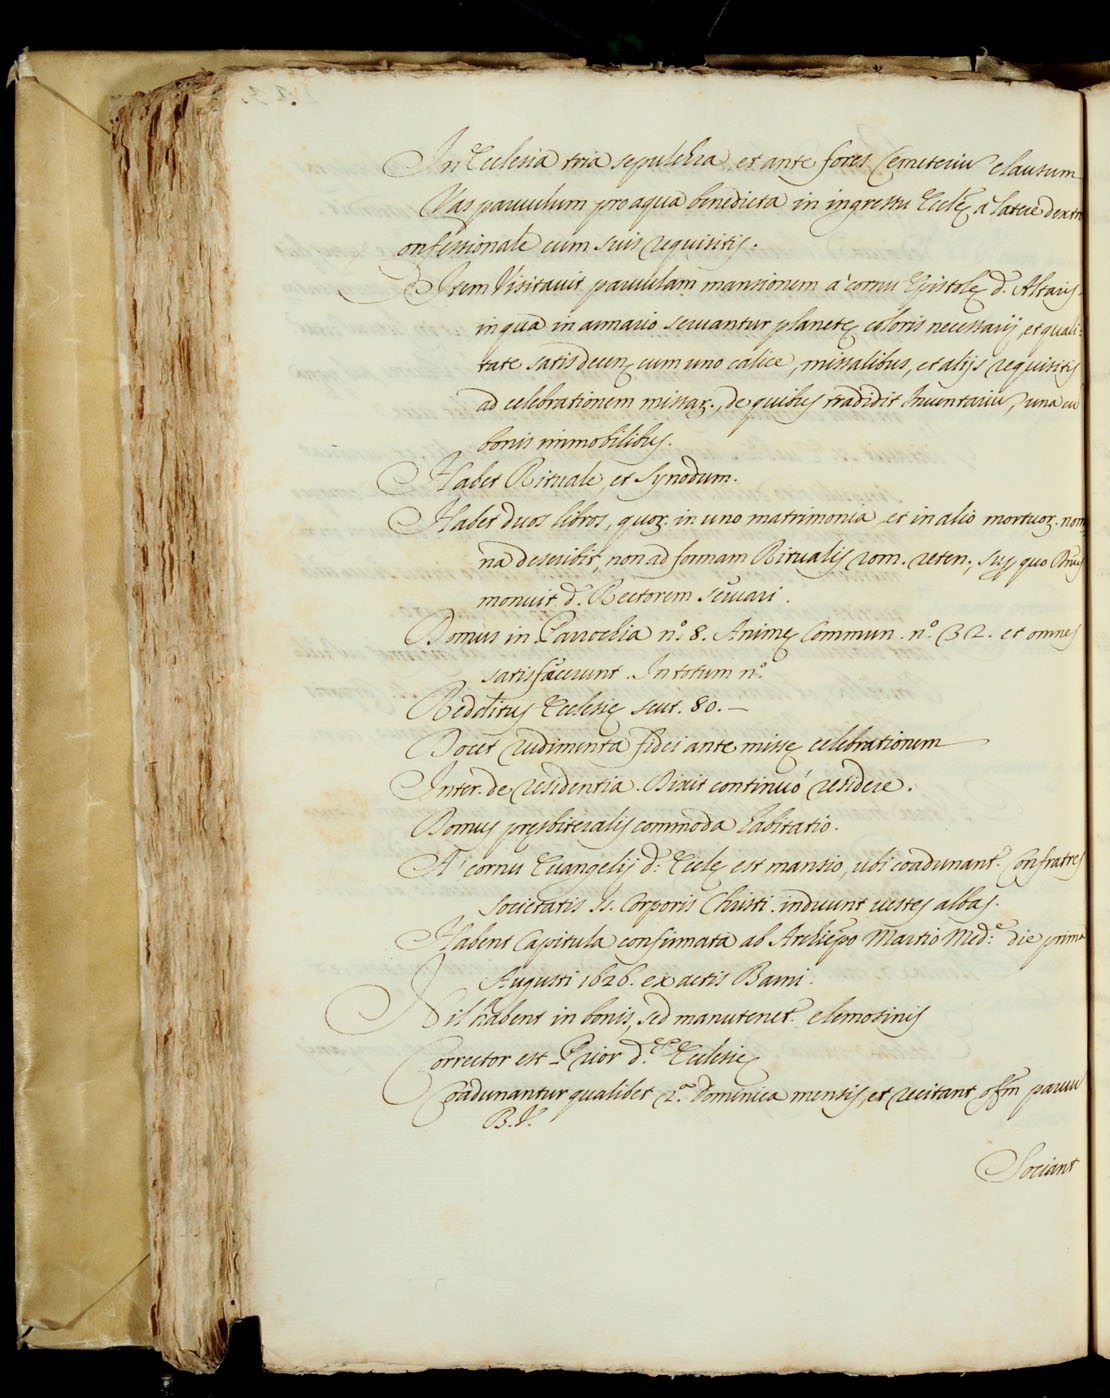 In Ecclesia tria sepulchra, et ante fores Cemeteriũ clausum
Vas parvulum pro aqua benedicta in ingressu Eccłę à latere dextro
Confessionale cum suis requisitis.
Item Visitavit parvulam mansionem à cornu Epistolę d. Altaris
in qua in armario servantur planetę coloris necessarij, et quali-
tate satis decenę cum uno calice, missalibus, et alijs requisitis
ad celebrationem missaꝝ., de quibus tradidit Inventariũ, una cũ
bonis immobilibus.
Habet Rituale, et Synodum.
Habet duos libros, quoꝝ. in uno matrimonia, et in alio mortuoꝝ. nom
na describit, non ad formam Ritualis rom. veten., sup quo
monuit d. Rectorem servari.
Domus in Parrochia nº. 8. Animę Commun. nº. 32. et omnes
satisfecerunt. In totum nº.
Redditus Ecclesię scut. 80.—
Docet rudimenta fidei ante missę celebrationem
Inter. de residentia. Dixit continuó residere.
Domus pręsbiteralis commoda habitatio.
A' cornu Evangelij d. Eccłę est mansio, ubi coadunant.r Confratres
Societatis Ss. Corporis Christi. induunt vestes albas.
Habent Capitula confirmata ab Archiepo Martio Med.e die prima
Augusti 1626. ex actis Barni.
Nil habent in bonis, sed manutenet.r elemosinis
Corrector est Prior d.ę Ecclesię
Coadunantur qualibet 2.a Dominica mensis, et recitant offm parvũ
B.V.
Sociant